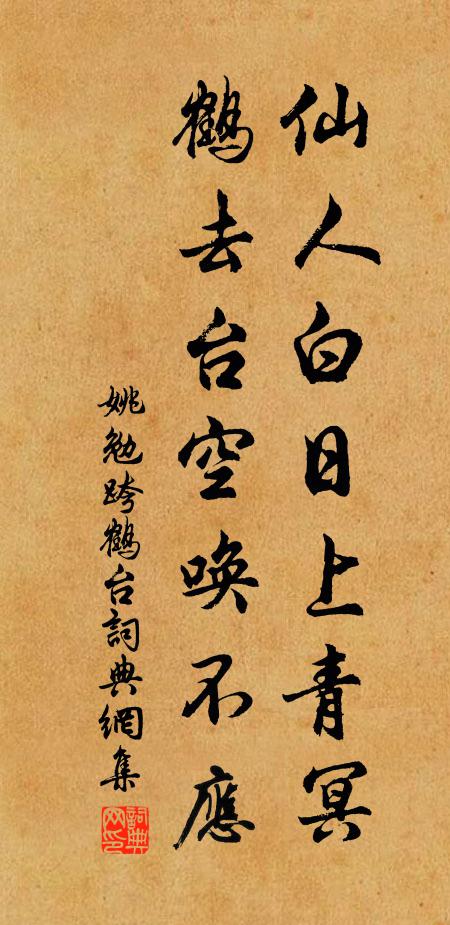 仙人白日上青冥
鹤去台空唤不應
姚勉跨鹤台詞典網集
詞典网印